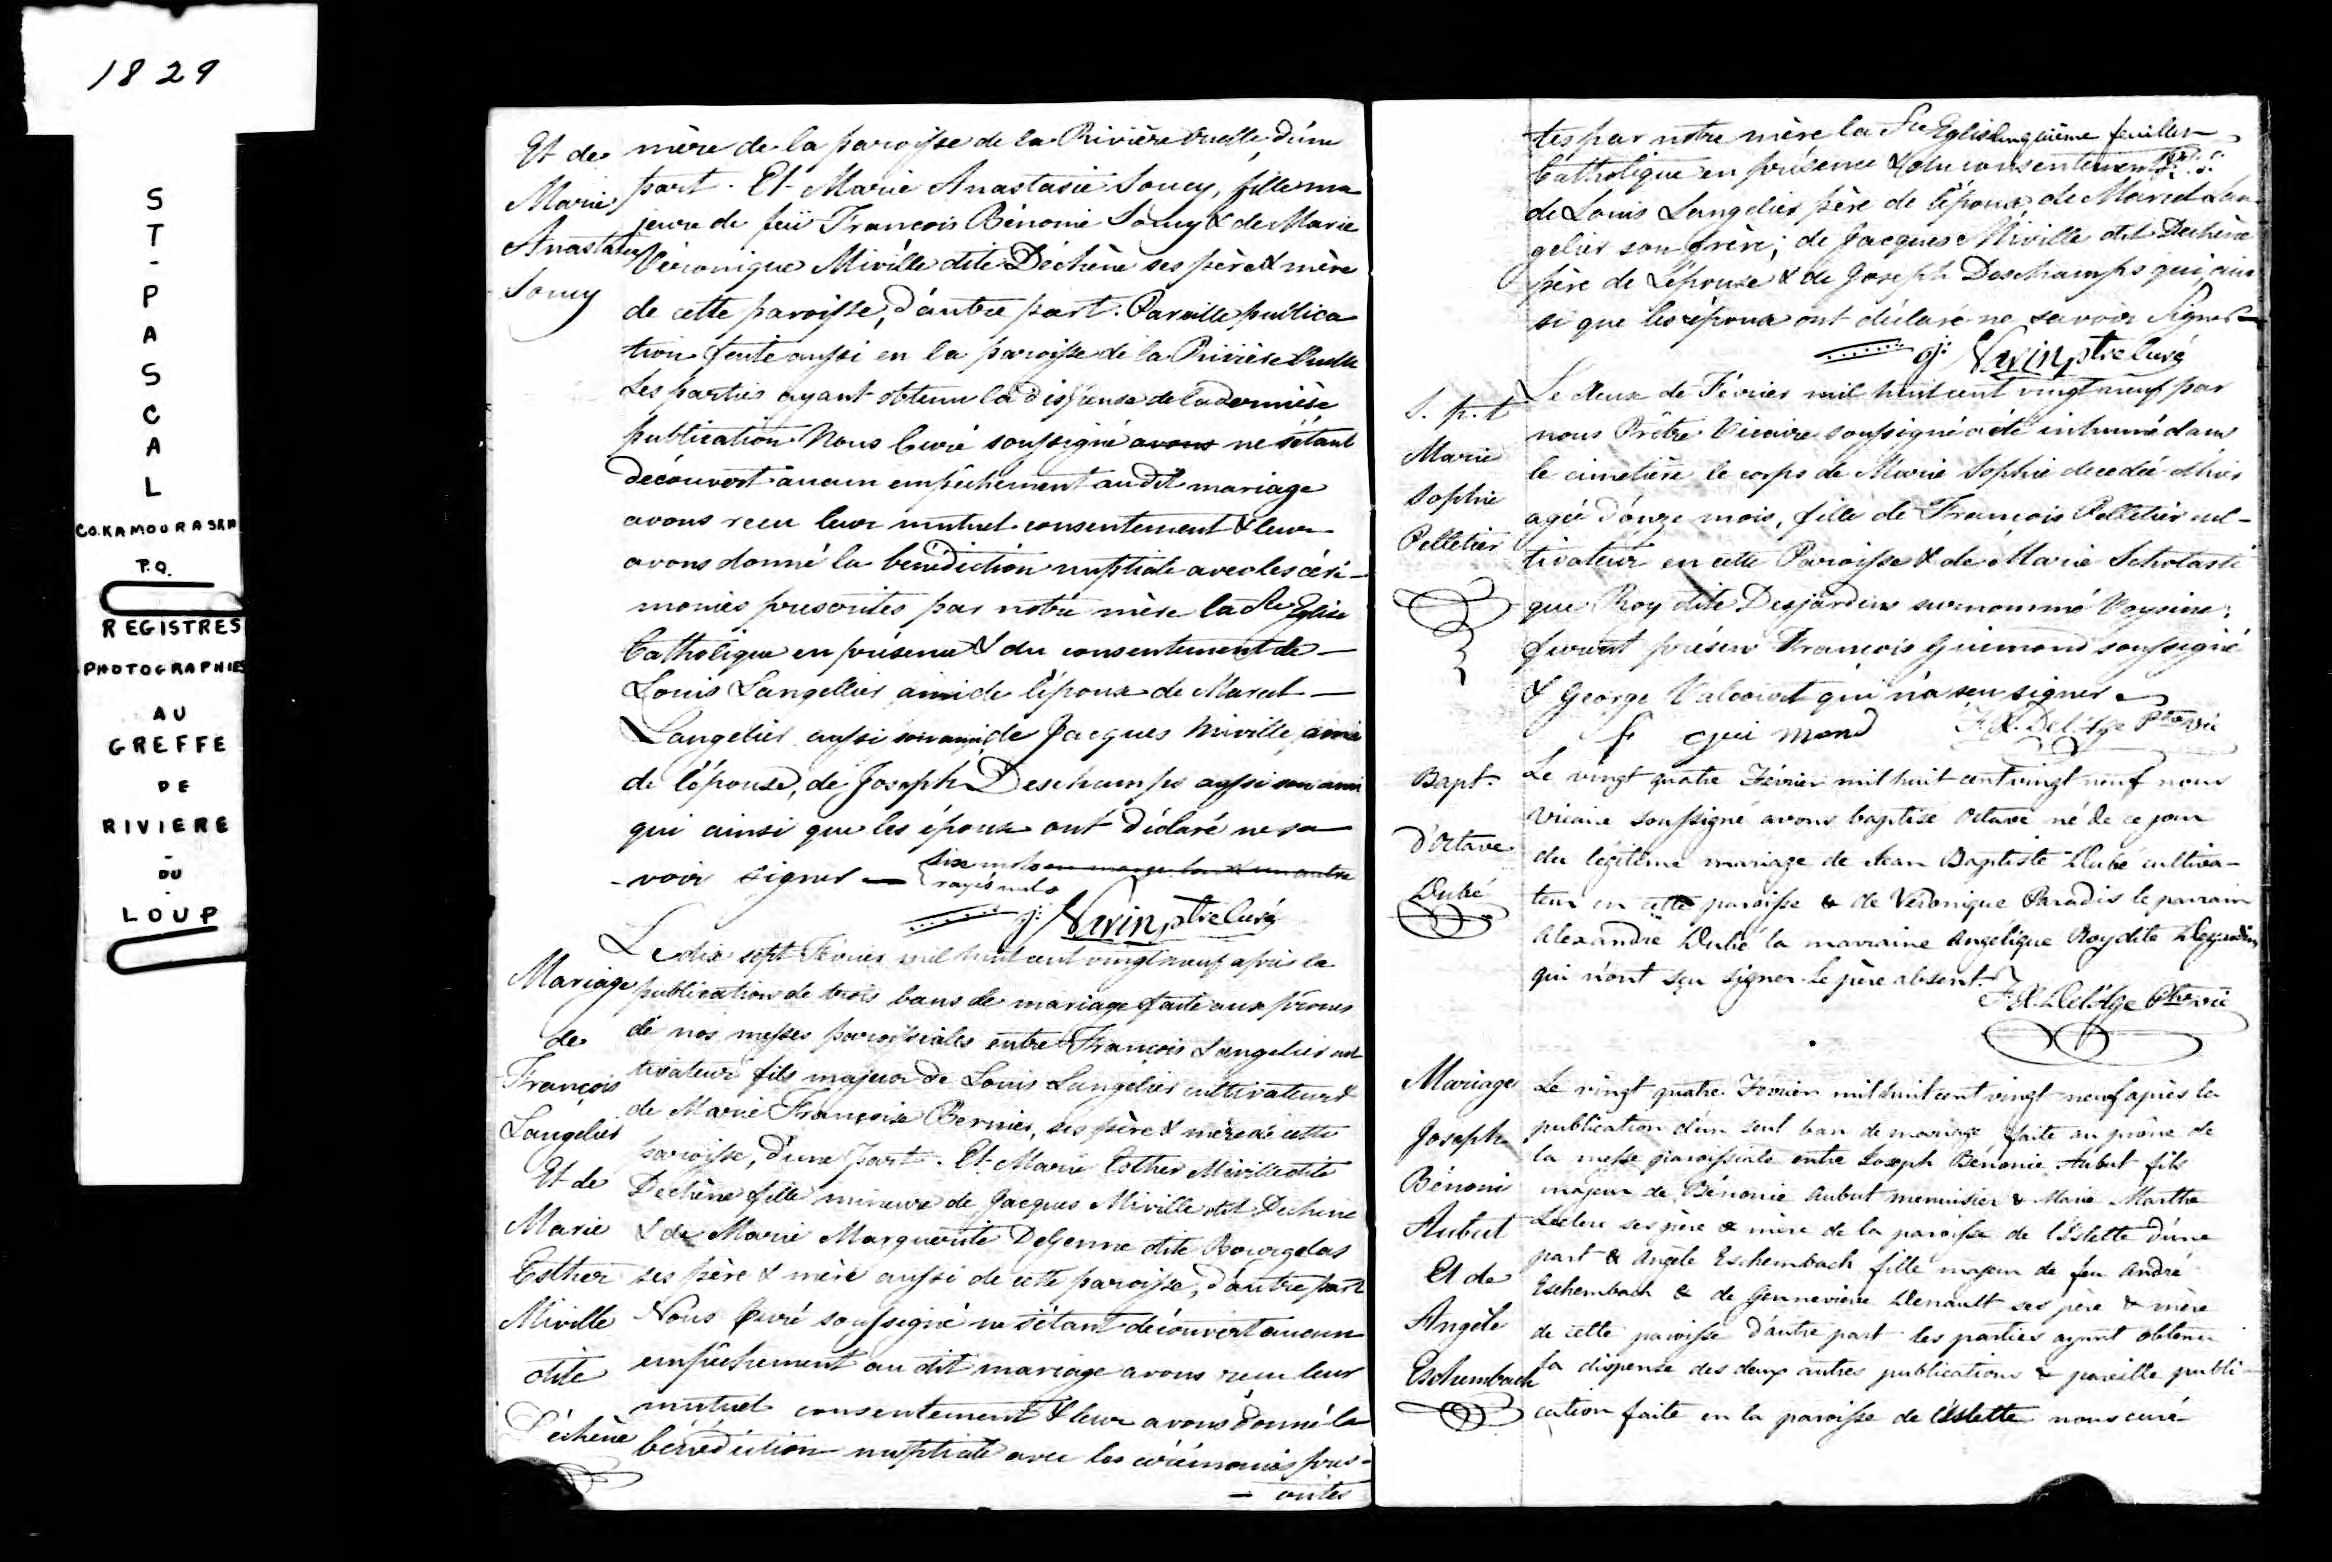 1829
ST-PASCAL
CO. KAMOURASKA
P.Q.
REGISTRES
PHOTOGRAPHIES
AU
GREFFE
DE
RIVIERE
-
DU
-
LOUP
Et de
Marie
Anastasie
Soucy
mère de la paroisse de la Rivière Ouelle d'une
part. Et Marie Anastasie Soucy, fille ma
jeure de feü François Bénonie Soucy & de Marie
Véronique Miville dite Déchène ses père & mère
de cette paroisse, d'autre part. Pareille publica
tion faite aussi en la paroisse de la Rivière Ouelle
Les parties ayant obtenu la dispense de la dernière
publication Nous Curé soussigné avons ne s'étant
découvert aucun empêchement audit mariage
avons recu leur mutuel consentement & leur
avons donné la bénédiction nuptiale avec les céré-
monies prescrites par notre mère la Ste Eglise
Catholique en présence & du consentement de
Louis Langellier ami de l'époux de Marcel
Langelier aussi son ami, de Jacques Miville ami
de l'épouse, de Joseph Deschamps aussi son ami
qui ainsi que les époux ont déclaré ne sa
voir signer
rayés nuls
J: Varin Ptre Curé
Mariage
de
François
Langelier
Et de
Marie
Esther
Miville
dite
Déchène
Le dix sept Février mil huit cent vingt neuf après la
publication de trois bans de mariage faite aux prônes
de nos messes paroissiales entre François Langelier cul
tivateur fils majeur de Louis Langelier cultivateur &
de Marie Françoise Bernier, ses père & mère de cette
paroisse, d'une part. Et Marie Esther Miville dite
Dechène fille mineure de Jacques Miville dit Dechene
& de Marie Marguerite DeGenne dite Bourgelas
ses père & mère aussi de cette paroisse, d'autre part
Nous Curé soussigné ne s'étant découvert aucun
empêchement au dit mariage avons recu leur
mutuel consentement & leur avons donné la
bénédiction nuptiale avec les cérémonies pres-
crites
cinquième feuillet
tes par notre mère la Ste Eglise
Catholique en présence & du consentement
de Louis Langelier père de l'époux, de Marcel Lan
gelier son frère; de Jacques Miville dit Dechène
père de L'épouse & de Joseph Deschamps qui, ain
si que les époux ont déclaré ne savoir Signer
J: Varin Ptre Curé
S. p. t
Marie
Sophie
Pelletier
Le deux de Février mil huit cent vingt neuf par
nous Prêtre Vicaire soussigné a été inhumé dans
le cimetière le corps de Marie Sophie decedée
agée d'onze mois, fille de François Pelletier cul-
tivateur en cette Paroisse & de Marie Scholasti
que Roy dite Desjardins surnommé Voysine;
furent présens François Guimond soussigné
& George Valcourt qui n'a seu signer
f gui mond
F. X. Delâge Ptre Vic
Bapt.
d'Octave
Dubé
Le vingt quatre Février mil huit cent vingt neuf nous
Vicaire soussigné avons baptisé Octave né de ce jour
du légitime mariage de Jean Baptiste Dubé cultiva-
teur en cette paroisse & de Véronique Paradis le parrain
Alexandre Dubé la marraine Angélique Roy dite Desjardins
qui n'ont sçu signer. Le père absent.
F. X. Delâge Ptre Vic
Mariage
Joseph
Bénoni
Aubut
Et de
Angèle
Eschembach
Le vingt quatre Février mil huit cent vingt neuf après la
publication d'un seul ban de mariage, faite au prône de
la messe paroissiale entre Joseph Bénonie Aubut fils
majeur de Bénonie Aubut menuisier & Marie Marthe
Leclerc ses père & mère de la paroisse de l'Islette d'une
part & Angele Eschembach fille majeur de feu André
Eschembach & de Genneviève Denault ses père & mère
de cette paroisse d'autre part les parties ayant obtenu
la dispense des deux autres publications & pareille publi-
cation faite en la paroisse de l'Islette nous curé